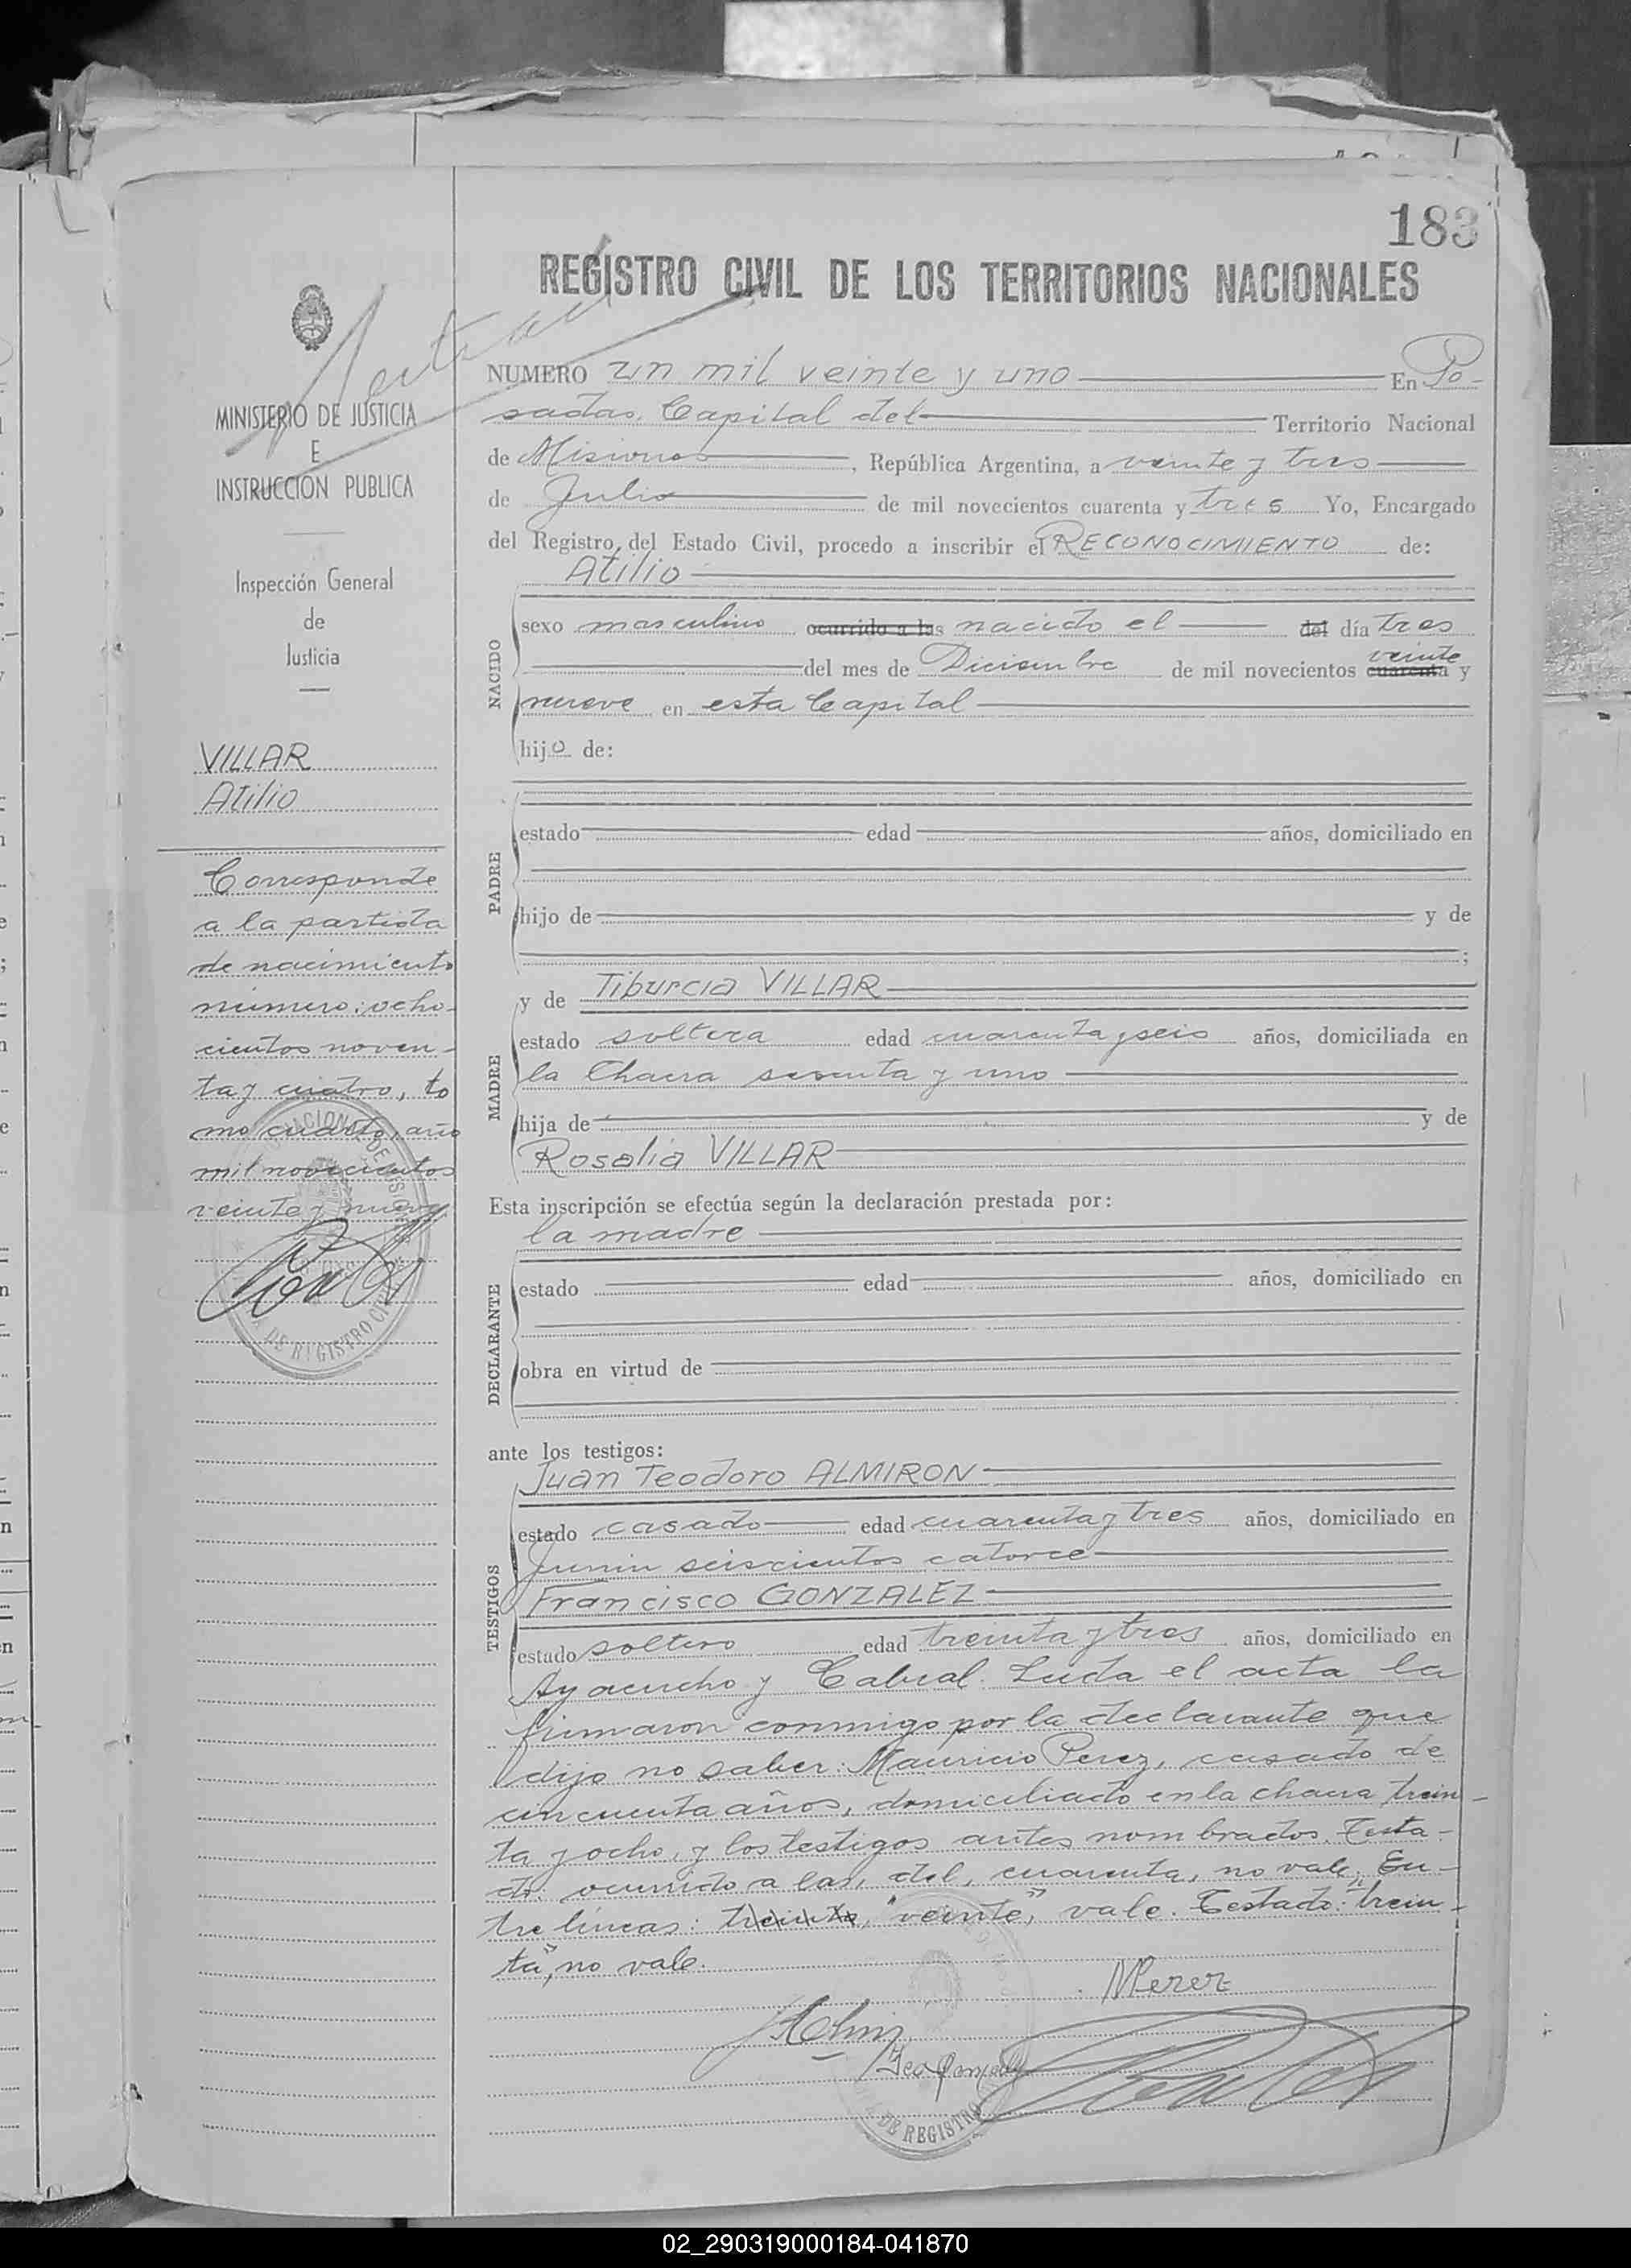 183
REGISTRO CIVIL DE LOS TERRITORIOS NACIONALES
MINISTERIO DE JUSTICIA
E
INSTRUCCIÓN PUBLICA
Inspección General
de
Justicia
VILLAR
Atilio
Corresponde
a la partida
de nacimiento
número: ocho-
cientos noven-
ta y cuatro, to
mo cuarto, año
mil novecientos
veinte y nueve
NUMERO un mil veinte y uno En Po-
sadas, Capital del Territorio Nacional
de Misiones, República Argentina, a veinte y tres
de Julio de mil novecientos cuarenta y tres Yo, Encargado
del Registro del Estado Civil, procedo a inscribir el RECONOCIMIENTO de:
Atilio
NACIDO
sexo masculino ocurrido a las nacido el del día tres
del mes de Diciembre de mil novecientos cuarenta veinte y
nueve en esta Capital
hijo de:
PADRE
estado edad años, domiciliado en
hijo de y de
;
MADRE
y de Tiburcia VILLAR
estado soltera edad cuarenta y seis años, domiciliada en
la Chacra sesenta y uno
hija de y de
Rosalia VILLAR
Esta inscripción se efectúa según la declaración prestada por:
la madre
DECLARANTE
estado edad años, domiciliado en
obra en virtud de
ante los testigos:
TESTIGOS
Juan Teodoro ALMIRON
estado casado edad cuarenta y tres años, domiciliado en
Junin seiscientos catorce
Francisco GONZALEZ
estado soltero edad treinta y tres años, domiciliado en
Ayacucho y Cabral. Leida el acta la
firmaron conmigo por la declarante que
dijo no saber: Mauricio Perez, casado de
cincuenta años, domiciliado en la chacra trein-
ta y ocho, y los testigos antes nombrados. Testa-
do: ocurrido a las, del, cuarenta, no vale. En-
tre lineas: treinta, "veinte," vale. Testado: "trein-
ta", no vale.
MPerez
DE REGISTRO
02_290319000184-041870